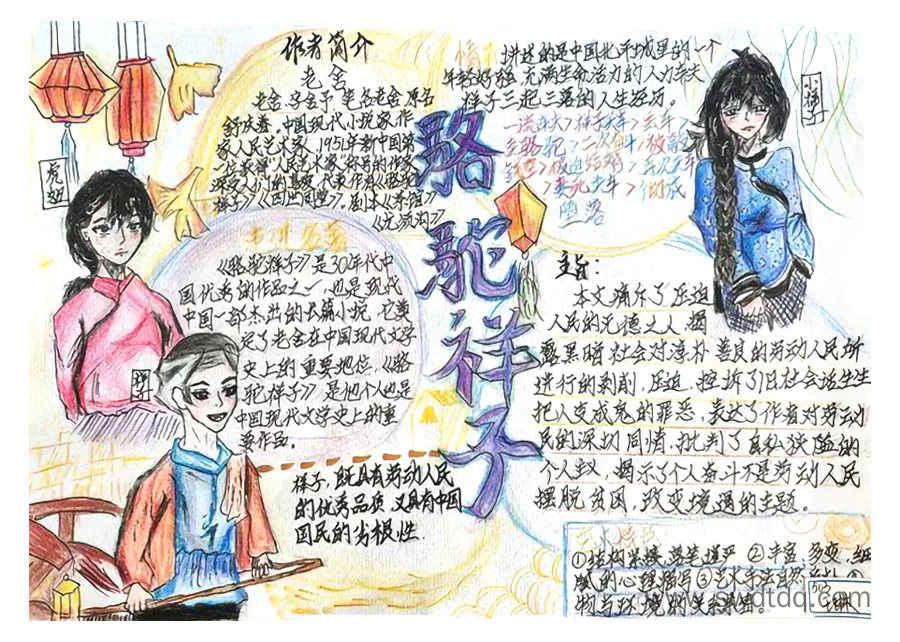 作者简介
老舍
老舍,字舍予,笔名老舍,原名
舒庆春。中国现代小说家,作
家,人民艺术家,1951年新中国第
一位获得"人民艺术家"称号的作家
深受人们的喜爱,代表作有《骆驼
祥子》《四世同堂》。剧本《茶馆》
《龙须沟》
虎妞
《骆驼祥子》是30年代中
国优秀的作品之一,也是现代
中国一部杰出的长篇小说,它奠
定了老舍在中国现代文学
史上的重要地位。《骆
驼祥子》是他个人也是
中国现代文学史上的重
要作品。
祥子
祥子,既具有劳动人民
的优秀品质,又具有中国
国民的劣根性.
骆驼祥子
情
讲述的是中国北平城里的一个
年轻好强、充满生命活力的人力车夫
祥子三起三落的人生经历。
堕落
小福子
主旨:
本文痛斥了压迫
人民的无德之人,揭
露黑暗社会对淳朴善良的劳动人民所
进行的剥削、压迫,控诉了旧社会活生生
把人变成鬼的罪恶,表达了作者对劳动
民的深切同情,批判了自私狭隘的
个人主义,揭示了个人奋斗不是劳动人民
摆脱贫困,改变境遇的主题。
①结构紧凑,落笔谨严 ②丰富、多变、细
腻的心理描写③艺术手法自然
物与环境的关系
swdtdq.com